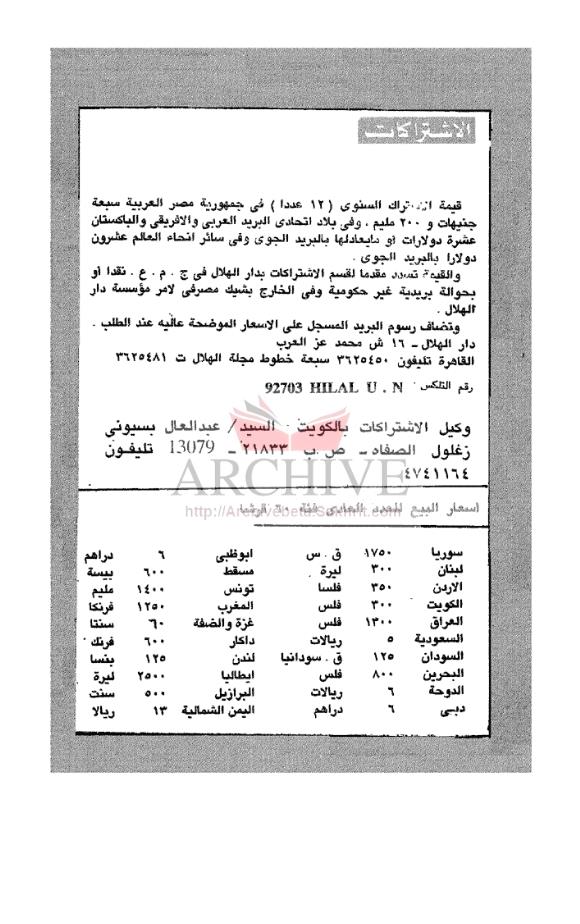 الاشتراكات
قيمة الاشتراك السنوى ( ١٢ عددا ) فى جمهورية مصر العربية سبعة
جنيهات و ٢٠٠ مليم ، وفى بلاد اتحادى البريد العربى والافريقى والباكستان
عشرة دولارات أو مايعادلها بالبريد الجوى وفى سائر انحاء العالم عشرون
دولارا بالبريد الجوى .
والقيمة تسدد مقدما لقسم الاشتراكات بدار الهلال فى ج . م . ع . نقدا أو
بحوالة بريدية غير حكومية وفى الخارج بشيك مصرفى لامر مؤسسة دار
الهلال .
وتضاف رسوم البريد المسجل على الاسعار الموضحة عاليه عند الطلب .
دار الهلال ـ ١٦ ش محمد عز العرب
القاهرة تليفون ٣٦٢٥٤٥٠ سبعة خطوط مجلة الهلال ت ٣٦٢٥٤٨١
رقم التلكس 92703 HILAL U . N
وكيل الاشتراكات بالكويت - السيد / عبدالعال بسيونى
زغلول الصفاه ـ ص.ب ٢١٨٣٣ ـ 13079 تليفون
٤٧٤١١٦٤
ARCHIVE
http://Archivebeta.Sakhrit.com
اسعار البيع للعدد العادى فئة ٦٠ قرشا
سوريا ١٧٥٠ ق . س ابوظبى ٦ دراهم
لبنان ٣٠٠ ليرة مسقط ٦٠٠ بيسة
الاردن ٣٥٠ فلسا تونس ١٤٠٠ مليم
الكويت ٣٠٠ فلس المغرب ١٢٥٠ فرنكا
العراق ١٣٠٠ فلس غزة والضفة ٦٠ سنتا
السعودية ٥ ريالات داكار ٦٠٠ فرنك
السودان ١٢٥ ق . سودانيا لندن ١٢٥ بنسا
البحرين ٨٠٠ فلس ايطاليا ٢٥٠٠ ليرة
الدوحة ٦ ريالات البرازيل ٥٠٠ سنت
دبى ٦ دراهم اليمن الشمالية ١٣ ريالا